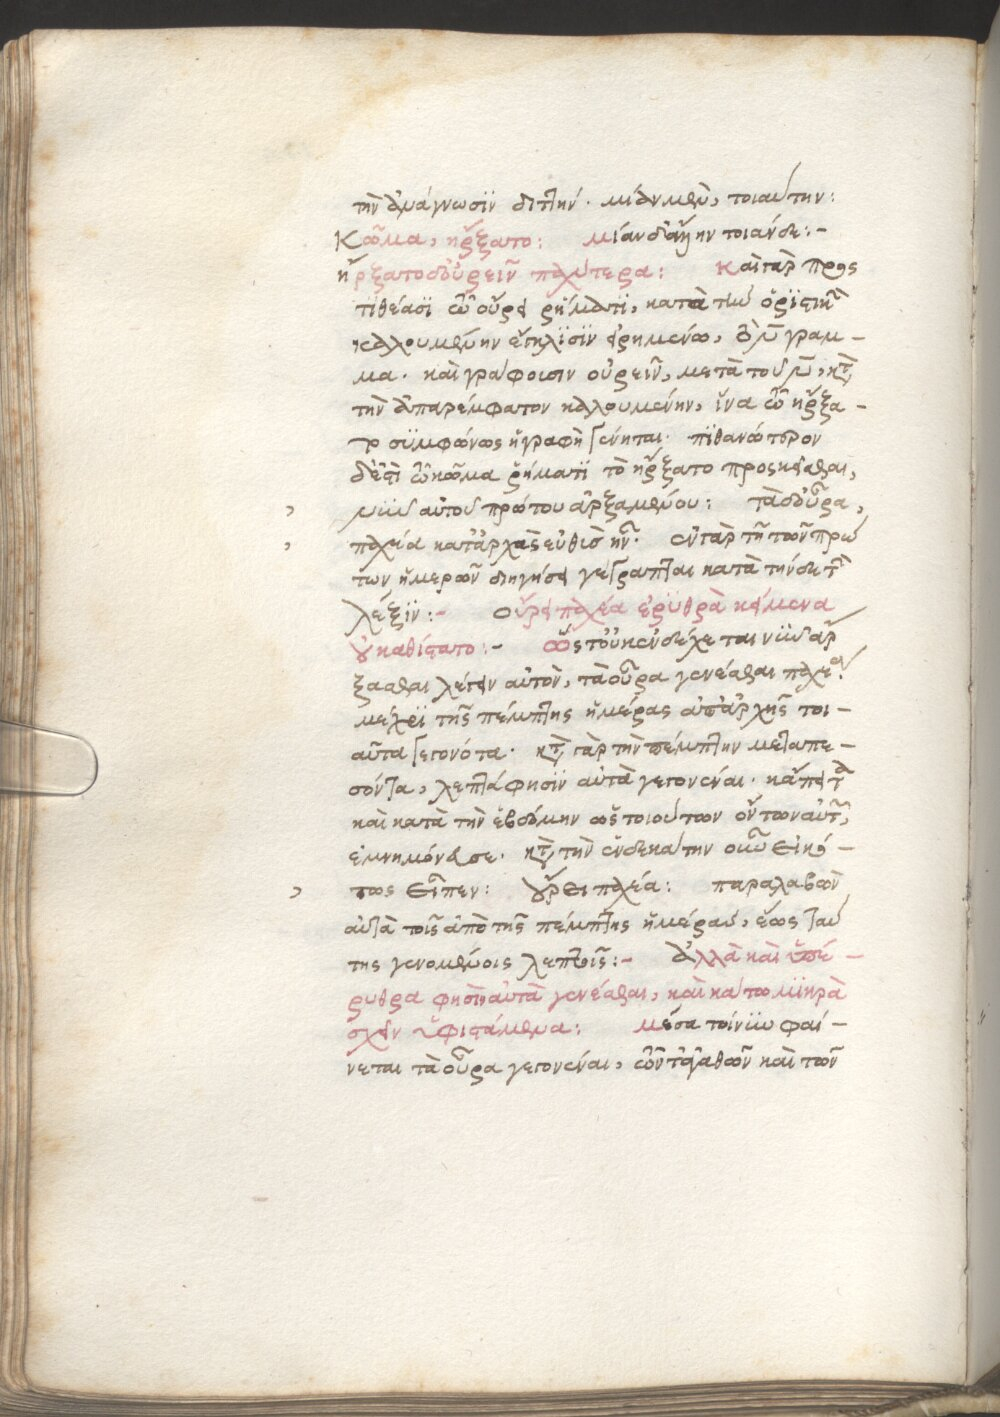 τὴν ἀνάγνωσϊν διπλήν· μίαν μὲν, τοιαύτην:
Κῶμα, ἤρξατο: μίαν δ' ἄλλην τοιάνδε:-
ἤρξατο δ' οὐρεῖν πλείω τερα: Καὶ γὰρ προς
τιθέασϊ τῶ οὔρει ῥήματϊ, κατὰ τὴν ὁρϊστικὴν
καλουμένην ἔγκλϊσϊν εἰρημένω, ν γραμ-
μα· καὶ γράφουσιν οὐρεῖν, μετὰ τοῦ ν, κατὰ
τὴν ἀπαρέμφατον καλουμένην, ἵνα τῶ ἤρξα-
το συμφώνως ἡ γραφὴ γένηται· πϊθανώτερον
δέ ἐστι τῶ κῶμα ῥήματϊ τὸ ἤρξατο προσκεῖσθαι,
νῦν αὐτοῦ πρώτου ἀρξαμένου: τὰ δ' οὖρα,
πλεία κατ' ἀρχὰς εὐθὺς ἦν· ἐν γὰρ τῆ τῶν πρώ
των ἡμερῶν διηγήσει γέγραπται κατὰ τήνδε τὴν
λέξϊν:- Οὔρει πλεία ἐρυθρὰ κείμενα
οὐ καθίστατο:- ὥστ' οὐκ ἐνδέχεται νῦν ἄρ
ξασθαι λέγειν αὐτὸν, τὰ οὖρα γενέσθαι πλεῖα.
μέχρϊ τῆς πέμπτης ἡμέρας ἀπ' ἀρχῆς τοι-
αῦτα γεγονότα· κατὰ γὰρ τὴν πέμπτην μεταπε-
σόντα, λεπτά φησϊν αὐτὰ γεγονέναι· κἄπειτα
καὶ κατὰ τὴν ἑβδόμην ὡς τοιούτων ὄντων αὐτῶν,
ἐμνημόνευσε· κατὰ τὴν ἑνδεκάτην οὕτω εἰκό-
τως εἶπεν: οὔρει πλεία: παραλαβὼν
αὐτὰ τοῖς ἀπὸ τῆς πέμπτης ἡμέρας, ἕως ταύ
της γενομένοις λεπτοῖς:- Ἀλλὰ καὶ ὑπέ-
ρυθρα φησϊν αὐτὰ γενέσθαι, καὶ κάτω μϊκρὰ
σχεῖν ὑφιστάμενα: Μέσα τοίνυν φαί-
νεται τὰ οὖρα γεγονέναι, τῶν τ' ἀγαθῶν καὶ τῶν